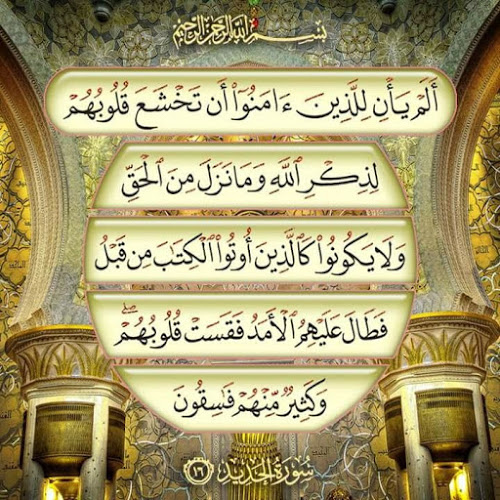 بِسْمِ ٱللَّهِ ٱلرَّحْمَٰنِ ٱلرَّحِيمِ
أَلَمْ يَأْنِ لِلَّذِينَ ءَامَنُوٓا۟ أَن تَخْشَعَ قُلُوبُهُمْ
لِذِكْرِ ٱللَّهِ وَمَا نَزَلَ مِنَ ٱلْحَقِّ
وَلَا يَكُونُوا۟ كَٱلَّذِينَ أُوتُوا۟ ٱلْكِتَٰبَ مِن قَبْلُ
فَطَالَ عَلَيْهِمُ ٱلْأَمَدُ فَقَسَتْ قُلُوبُهُمْ ۖ
وَكَثِيرٌ مِّنْهُمْ فَٰسِقُونَ
سُورَةُ الحَدِيد ١٦